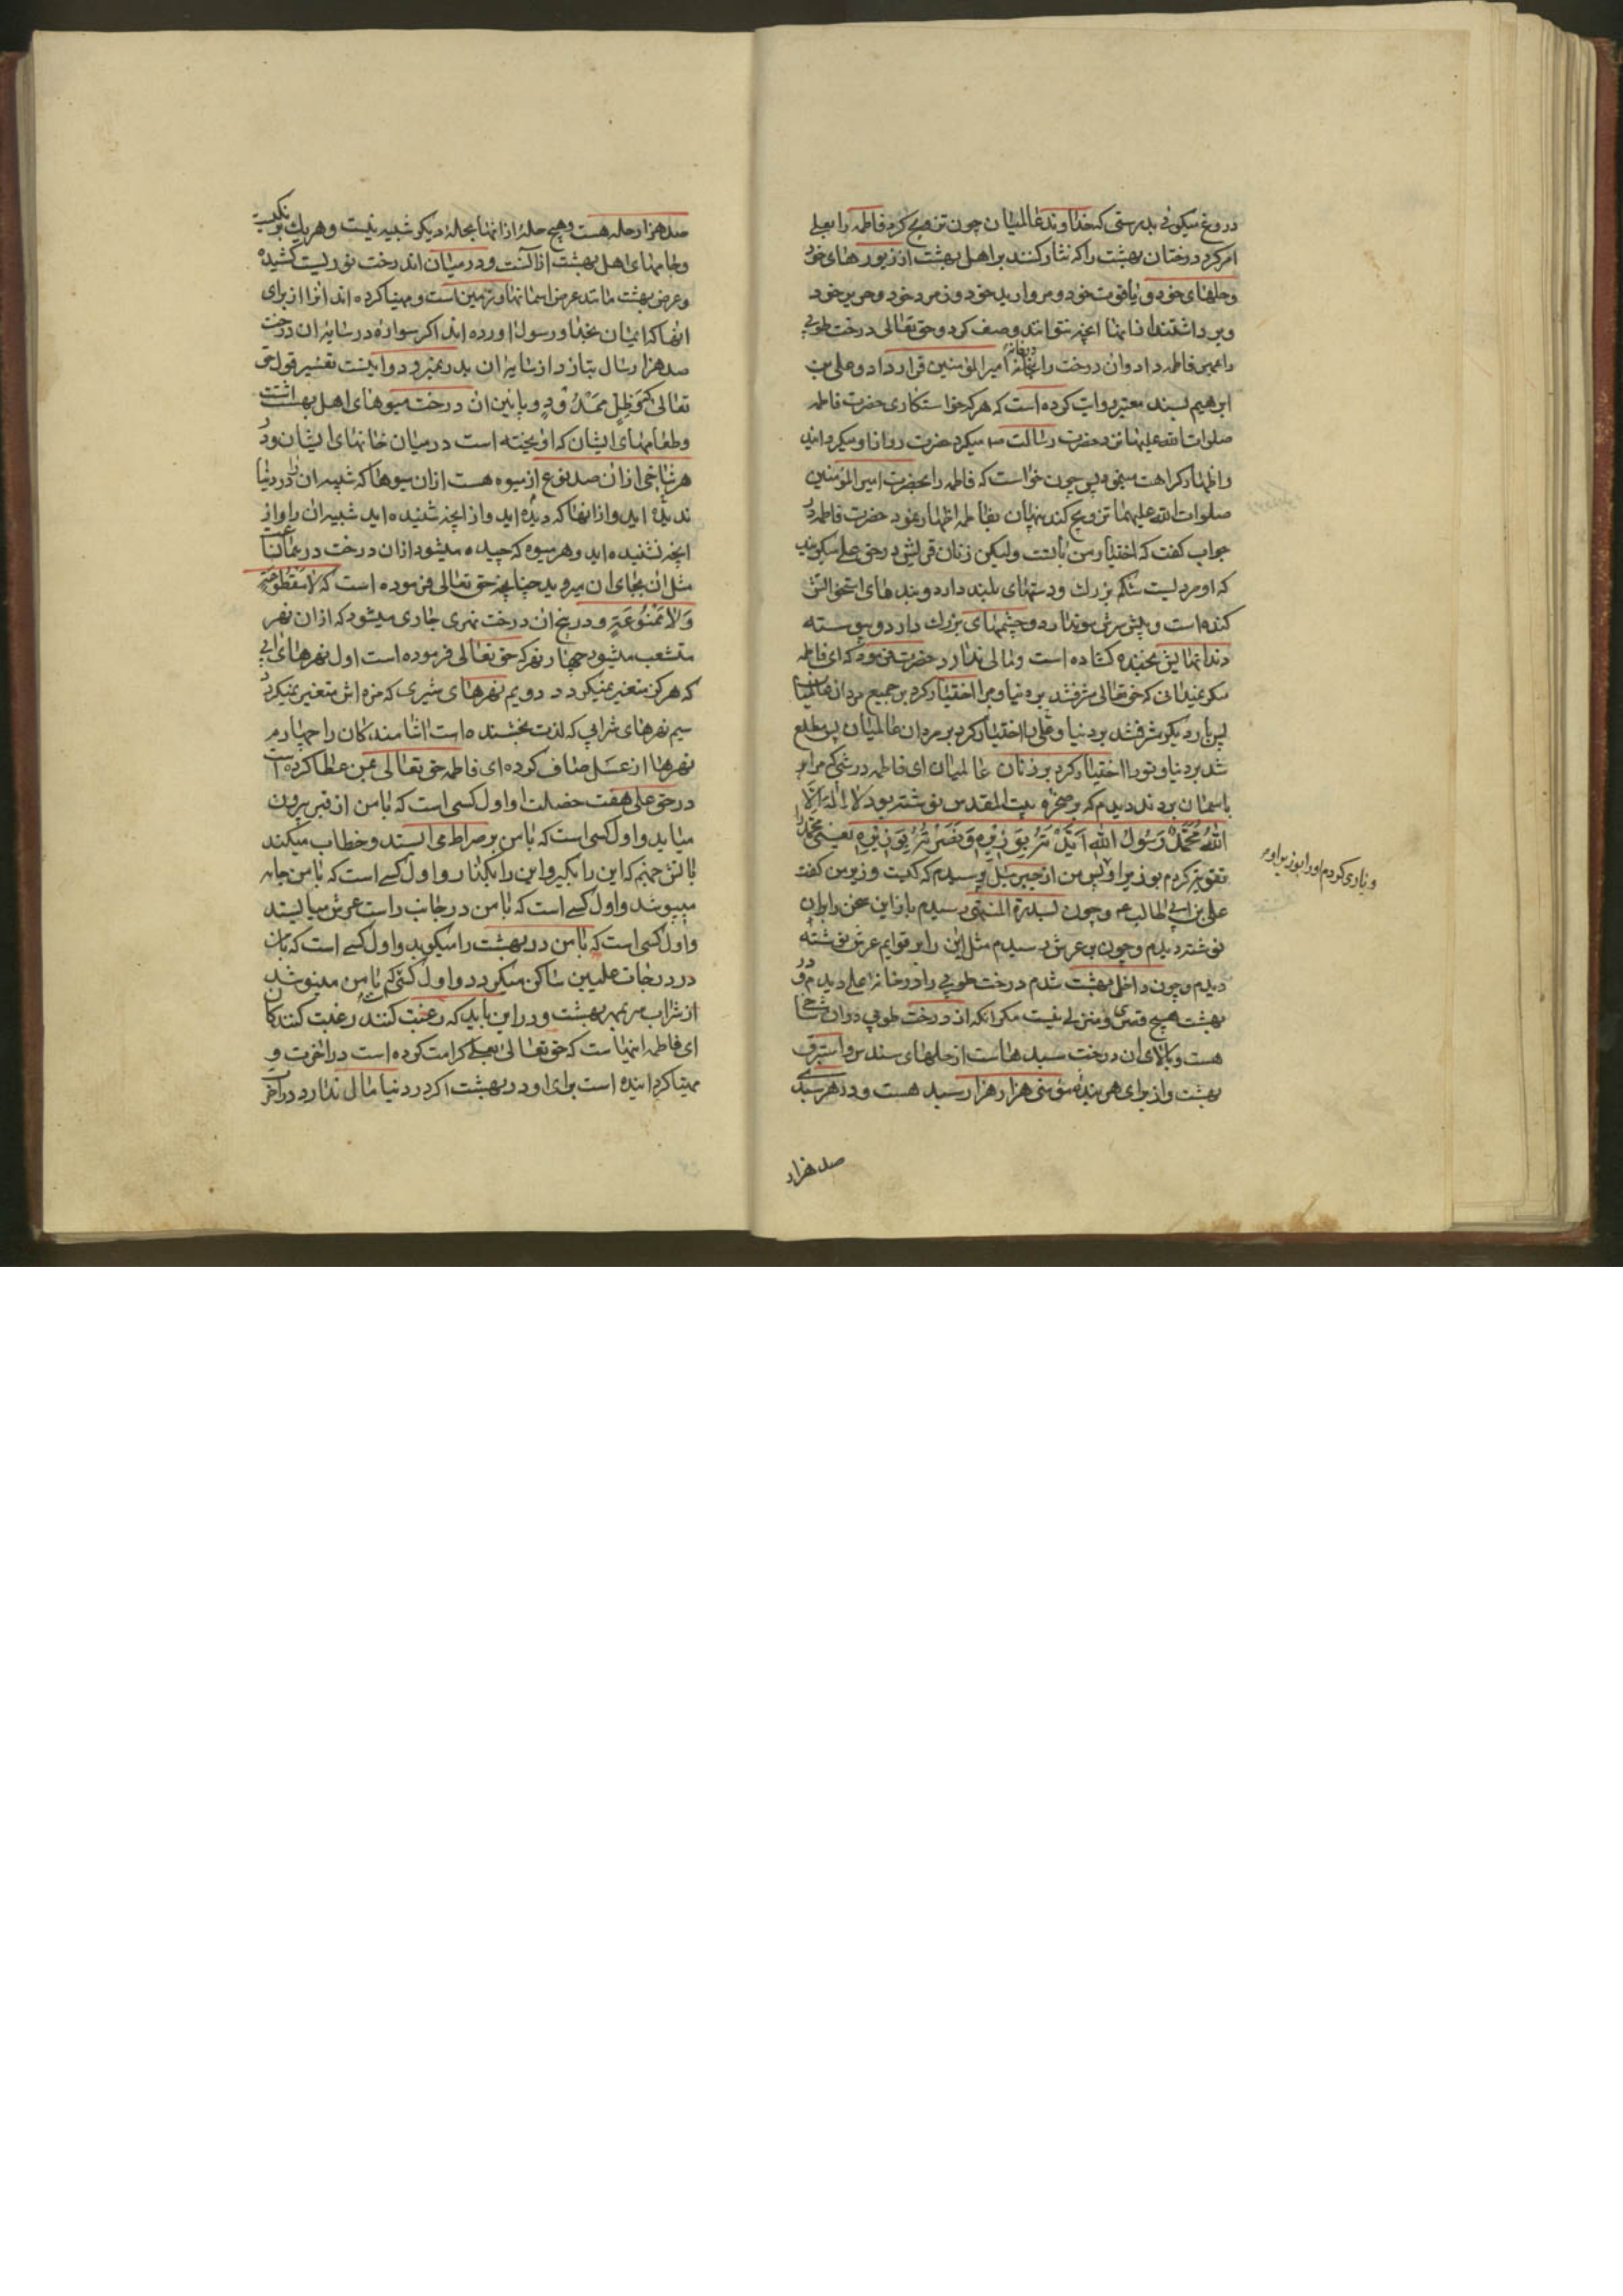 دروغ میگوئی بدرستی که خداوند عالمیان چون تزویج کرم فاطمه را بعلی
امر کرد درختان بهشت را که نثار کنند بر اهل بهشت از زیورهای خود
و حلهای خود و یاقوت خود و مروارید خود و زمرد خود و حریر خود
و برداشتند از انها انچه نتوانند وصف کرد و حق تعالی درخت طوبی
را بمهر فاطمه داد و ان درخت را در خانه امیر المؤمنین قرار داد و علی بن
ابرهیم بسند معتبر روایت کرده است که هر که خواستکاری حضرت فاطمه
صلوات الله علیها نزد حضرت رسالت میکرد حضرت رو از او میکردانید
و اظهار کراهت مینمود پس چون خواست که فاطمه را بحضرت امیر المؤمنین
صلوات الله علیهما تزویج کند پنهان بفاطمه اظهار نمود حضرت فاطمه در
جواب کفت که اختیار من با تست ولیکن زنان قریش در حق علی میکویند
که او مردیست شکم بزرک و دستهای بلند دارد و بندهای استخوانش
کنده است و پیش سرش مو ندارد و چشمهای بزرک دارد و پیوسته
دندانهایش بخنده کشاده است و مالی ندارد حضرت فرمود که ای فاطمه
مکر نمیدانی که حق تعالی مشرف شد بر دنیا و مرا اختیار کرد بر جمیع مردان عالمیان
پس بار دیکر مشرف شد بر دنیا و علی را اختیار کرد بر مردان عالمیان پس مطلع
شد بر دنیا و تو را اختیار کرد بر زنان عالمیان ای فاطمه در شبی که مرا بر
باسمان بردند دیدم که بر صخره بیت المقدس نوشته بود لا اله الا
الله محمد رسول الله ایدته بوزیره و نصرته بوزیره یعنی محمد را
تقویت کردم بوزیر او پس من از جبرئیل پرسیدم که کیست وزیر من کفت
علی بن ابی طالب ع و چون بسدرة المنتهی رسیدم باز این سخن را بران
نوشته دیدم و چون بعرش رسیدم مثل این را بر قوایم عرش نوشته
دیدم و چون داخل بهشت شدم درخت طوبی را در خانه علی دیدم و در
بهشت هیچ قصری و منزلی نیست مکر انکه از درخت طوبی در ان شاخی
هست و بالای ان درخت سبدها است از حلهای سندس و استبرق
بهشت و از برای هر بنده مؤمنی هزار هزار سبد هست و در هر سبدی
صد هزار
و یاری کردم او را بوزیر او م
صد هزار حله هست و هیچ حله از انها بحله دیکر شبیه نیست و هر یک برنکیست
و جامهای اهل بهشت از انست و در میان اند درخت نوریست کشیده
و عرض بهشت مانند عرض اسمانها و زمین است و مهیا کرده اند انرا از برای
انها که ایمان بخدا و رسول اورده اند اکر سواره در سایه ان درخت
صد هزار سال بتازد از سایه ان بدر نمیرود و اینست تفسیر قول حق
تعالی که و ظل ممدود و پایین ان درخت میوهای اهل بهشت است
و طعامهای ایشان که اویخته است در میان خانهای ایشان و در
هر شاخی از ان صد نوع از میوه هست از ان میوها که شبیه ان را در دنیا
ندیده اید و از انها که دیده اید و از انچه شنیده اید شبیه ان را و از
انچه نشنیده اید و هر میوه که چیده میشود از ان درخت در همان ساعت
مثل ان بجای ان میروید چنانچه حق تعالی فرموده است که لا مقطوعة
ولا ممنوعة و در بیخ ان درخت نهری جاری میشود که از ان نهر
منشعب میشود چهار نهر که حق تعالی فرموده است اول نهرهای ابی
که هرکز متغیر نمیکردد دویم نهرهای شیری که مزه اش متغیر نمیکردد
سیم نهرهای شرابی که لذت بخشنده است اشامندکان را چهارم
نهرها از عسل صاف کرده ای فاطمه حق تعالی بمن عطا کرده است
در حق علی هفت خصلت او اول کسی است که با من از قبر بیرون
میاید و اول کسی است که با من بر صراط می ایستد و خطاب میکند
باتش جهنم که این را بکیر و این را بکذار و اول کسی است که با من جامه
میپوشد و اول کسی است که با من در جانب راست عرش میایستد
و اول کسی است که با من در بهشت را میکوبد و اول کسی است که با من
در درجات علیین ساکن میکردد و اول کسی که با من مینوشد
از شراب سر بمهر بهشت و در این باید که رغبت کنند رغبت کنندکان
ای فاطمه اینهاست که حق تعالی بعلی کرامت کرده است در اخرت و
مهیا کردانیده است برای او در بهشت اکر در دنیا مالی ندارد در اخر